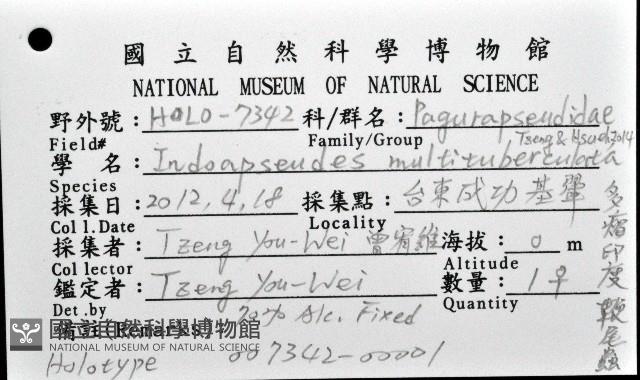 國立自然科學博物館
NATIONAL MUSEUM OF NATURAL SCIENCE
野外號：HOLO-7342 科/群名：Pagurapseudidae
Field# Family/Group Tzeng & Hsueh, 2014
學 名：Indoapseudes multituberculata
Species
採集日：2012,4,18 採集點：台東成功基翬
Coll.Date Locality
採集者：Tzeng You-Wei 曾宥維 海拔：0 m
Collector Altitude
鑑定者：Tzeng You-Wei 數量：1♀
Det.by Quantity
備註(Remarks) 70% Alc. Fixed
Holotype 007342-00001
多瘤印度鞭尾蟲
國立自然科學博物館
NATIONAL MUSEUM OF NATURAL SCIENCE